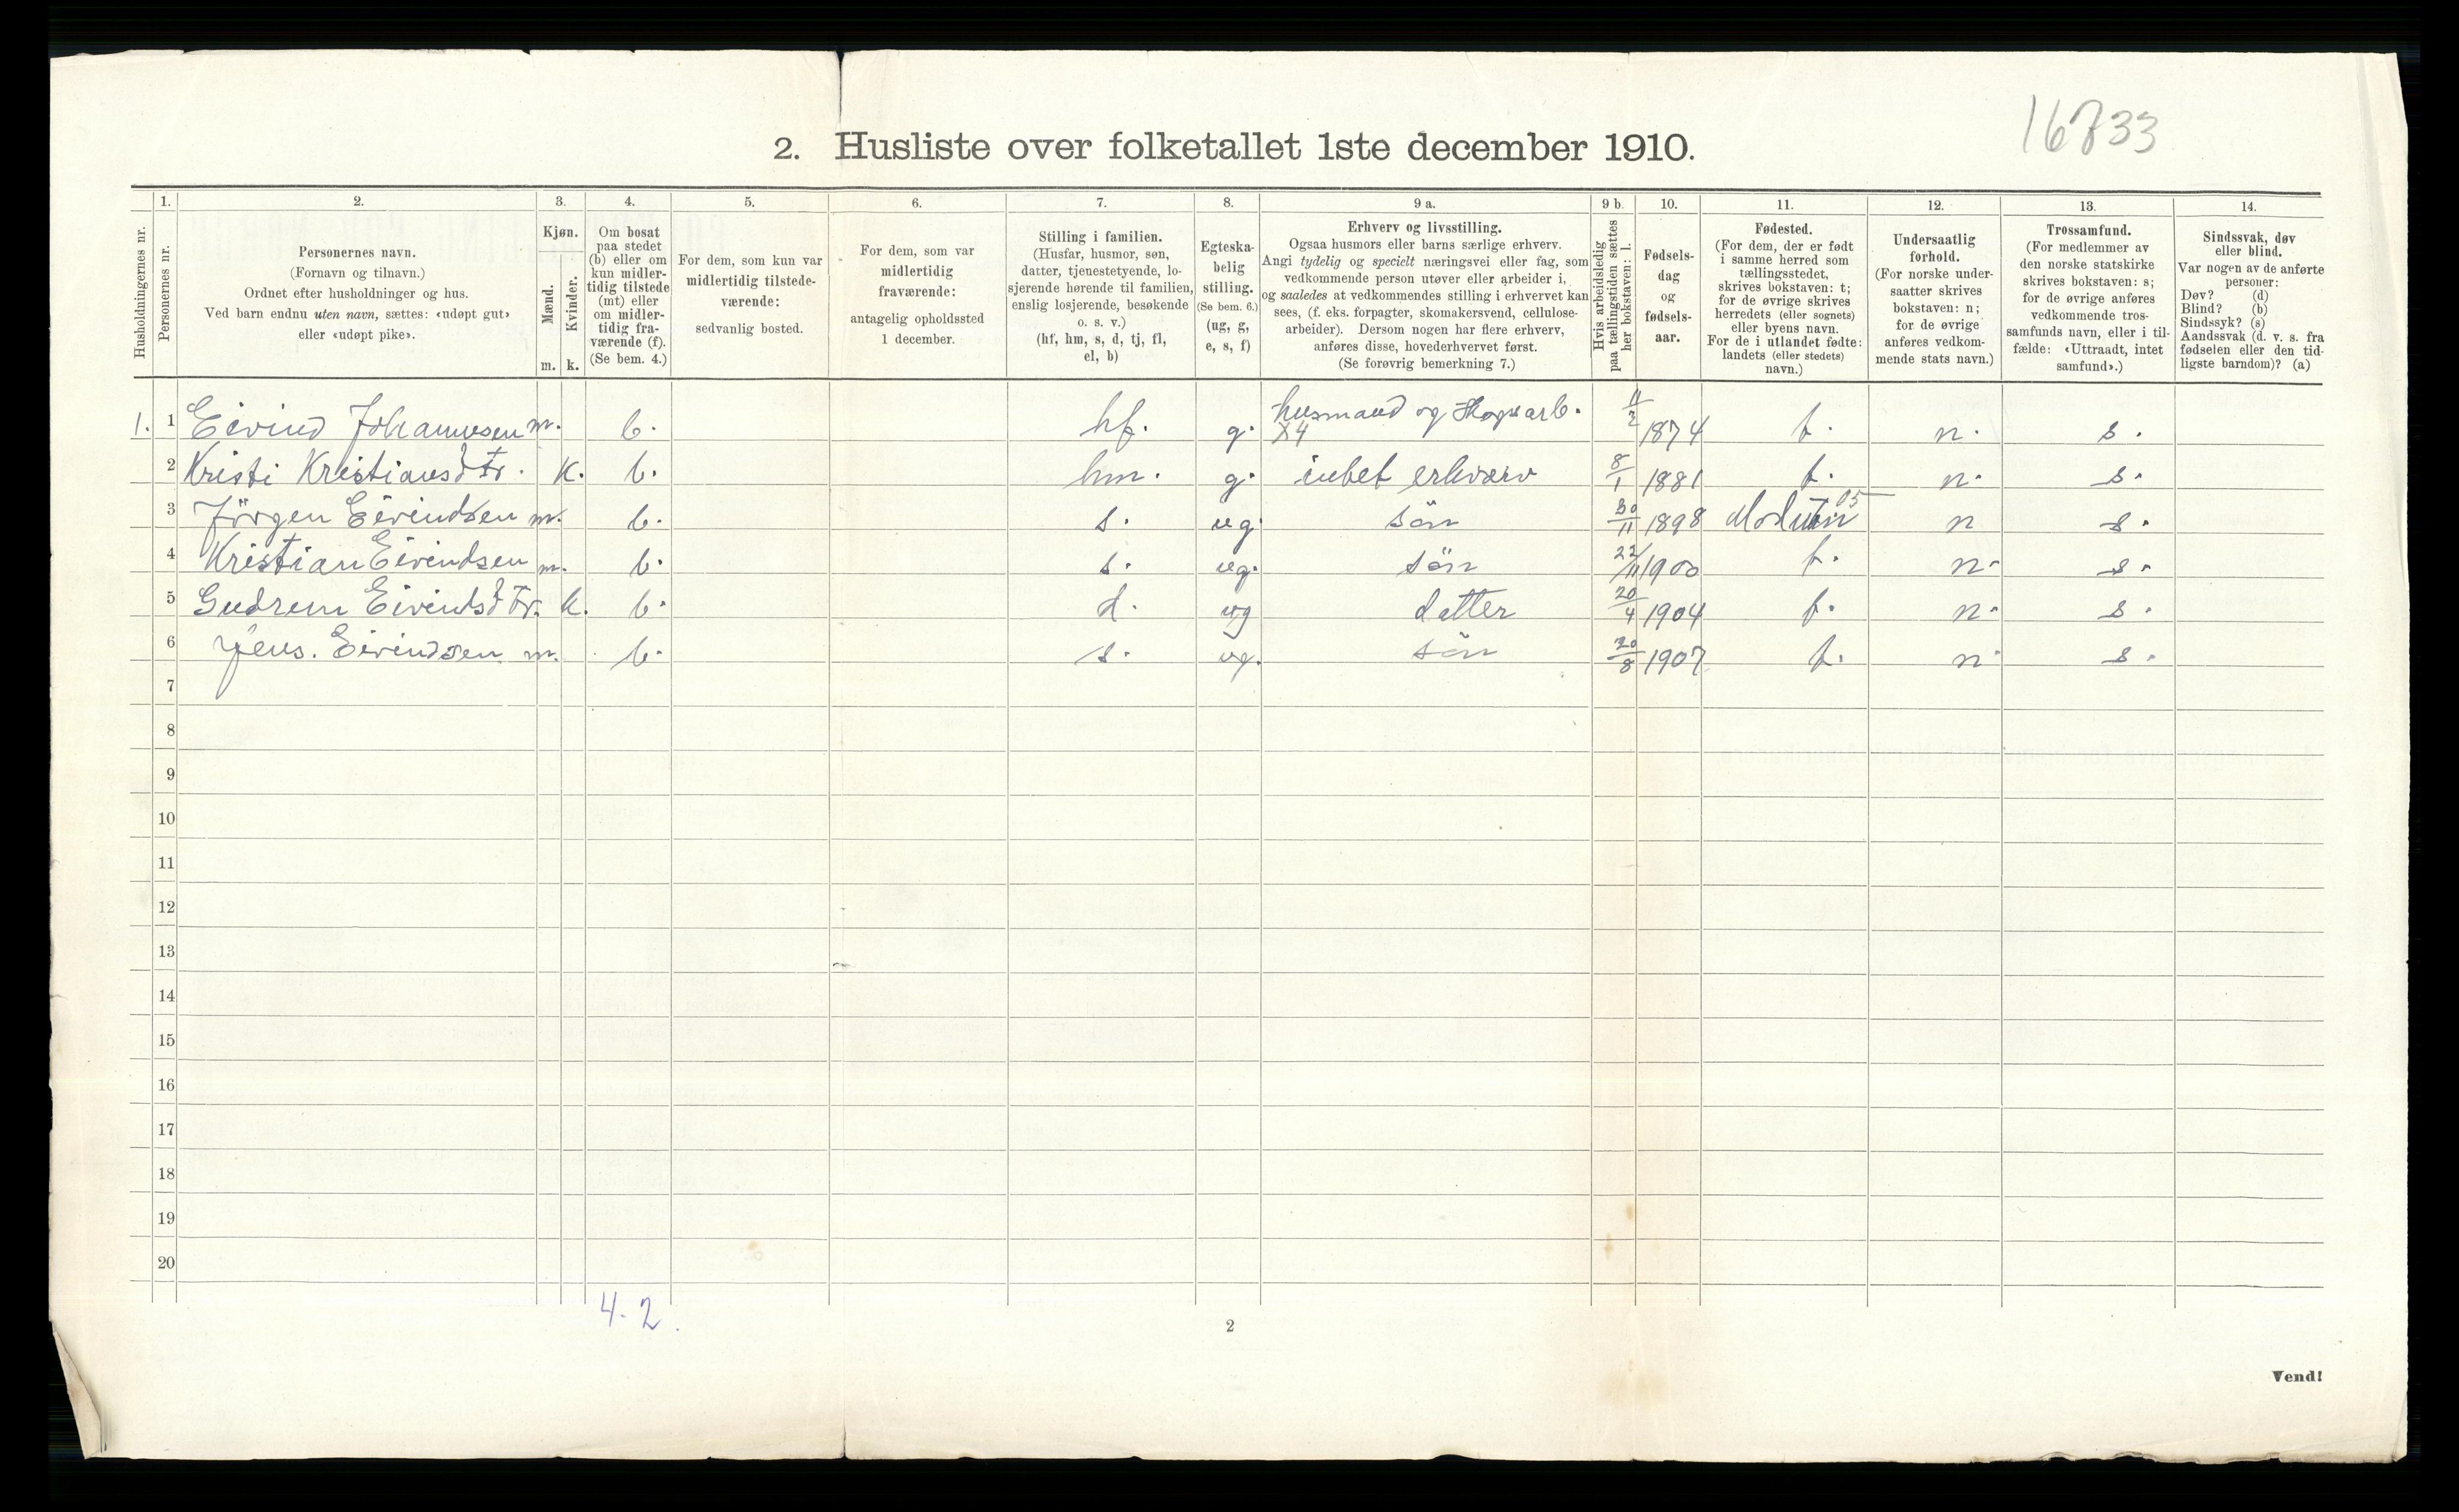 16733
2. Husliste over folketallet 1ste december 1910.
Husholdningernes nr.
1.
Personernes nr.
2.
Personernes navn.
(Fornavn og tilnavn.)
Ordnet efter husholdninger og hus.
Ved barn endnu uten navn, sættes: «udøpt gut»
eller «udøpt pike».
3.
Kjøn.
Mænd.
Kvinder.
m. k.
4.
Om bosat
paa stedet
(b) eller om
kun midler-
tidig tilstede
(mt) eller
om midler-
tidig fra-
værende (f).
(Se bem. 4.)
5.
For dem, som kun var
midlertidig tilstede-
værende:
sedvanlig bosted.
6.
For dem, som var
midlertidig
fraværende:
antagelig opholdssted
1 december.
7.
Stilling i familien.
(Husfar, husmor, søn,
datter, tjenestetyende, lo-
sjerende hørende til familien,
enslig losjerende, besøkende
o. s. v.)
(hf, hm, s, d, tj, fl,
el, b)
8.
Egteska-
belig
stilling.
(Se bem. 6.)
(ug, g,
e, s, f)
9 a.
Erhverv og livsstilling.
Ogsaa husmors eller barns særlige erhverv.
Angi tydelig og specielt næringsvei eller fag, som
vedkommende person utøver eller arbeider i,
og saaledes at vedkommendes stilling i erhvervet kan
sees, (f. eks. forpagter, skomakersvend, cellulose-
arbeider). Dersom nogen har flere erhverv,
anføres disse, hovederhvervet først.
(Se forøvrig bemerkning 7.)
9 b.
Hvis arbeidsledig
paa tællingstiden sættes
her bokstaven: l.
10.
Fødsels-
dag
og
fødsels-
aar.
11.
Fødested.
(For dem, der er født
i samme herred som
tællingsstedet,
skrives bokstaven: t;
for de øvrige skrives
herredets (eller sognets)
eller byens navn.
For de i utlandet fødte:
landets (eller stedets)
navn.)
12.
Undersaatlig
forhold.
(For norske under-
saatter skrives
bokstaven: n;
for de øvrige
anføres vedkom-
mende stats navn.)
13.
Trossamfund.
(For medlemmer av
den norske statskirke
skrives bokstaven: s;
for de øvrige anføres
vedkommende tros-
samfunds navn, eller i til-
fælde: «Uttraadt, intet
samfund».)
14.
Sindssvak, døv
eller blind.
Var nogen av de anførte
personer:
Døv? (d)
Blind? (b)
Sindssyk? (s)
Aandssvak (d. v. s. fra
fødselen eller den tid-
ligste barndom)? (a)
1. 1 Eivind Johannesen m. b. hf. g. husmand og Skogsarb. X4 11/2 1874 t. n. s.
2 Kristi Kristiansdtr. k. b. hm. g. intet erhverv 8/1 1881 t. n. s.
3 Jörgen Eivindsen m. b. s. ug. sön 30/11 1898 05 n s.
4 Kristian Eivindsen m. b. s. ug. sön 22/11 1900 t. n. s.
5 Gudrun Eivindsdtr. k. b. d. ug datter 20/4 1904 t. n. s.
6 Jens. Eivindsen m. b. s. ug. sön 20/8 1907 t. n. s.
7
8
9
10
11
12
13
14
15
16
17
18
19
20
4. 2.
2
Vend!